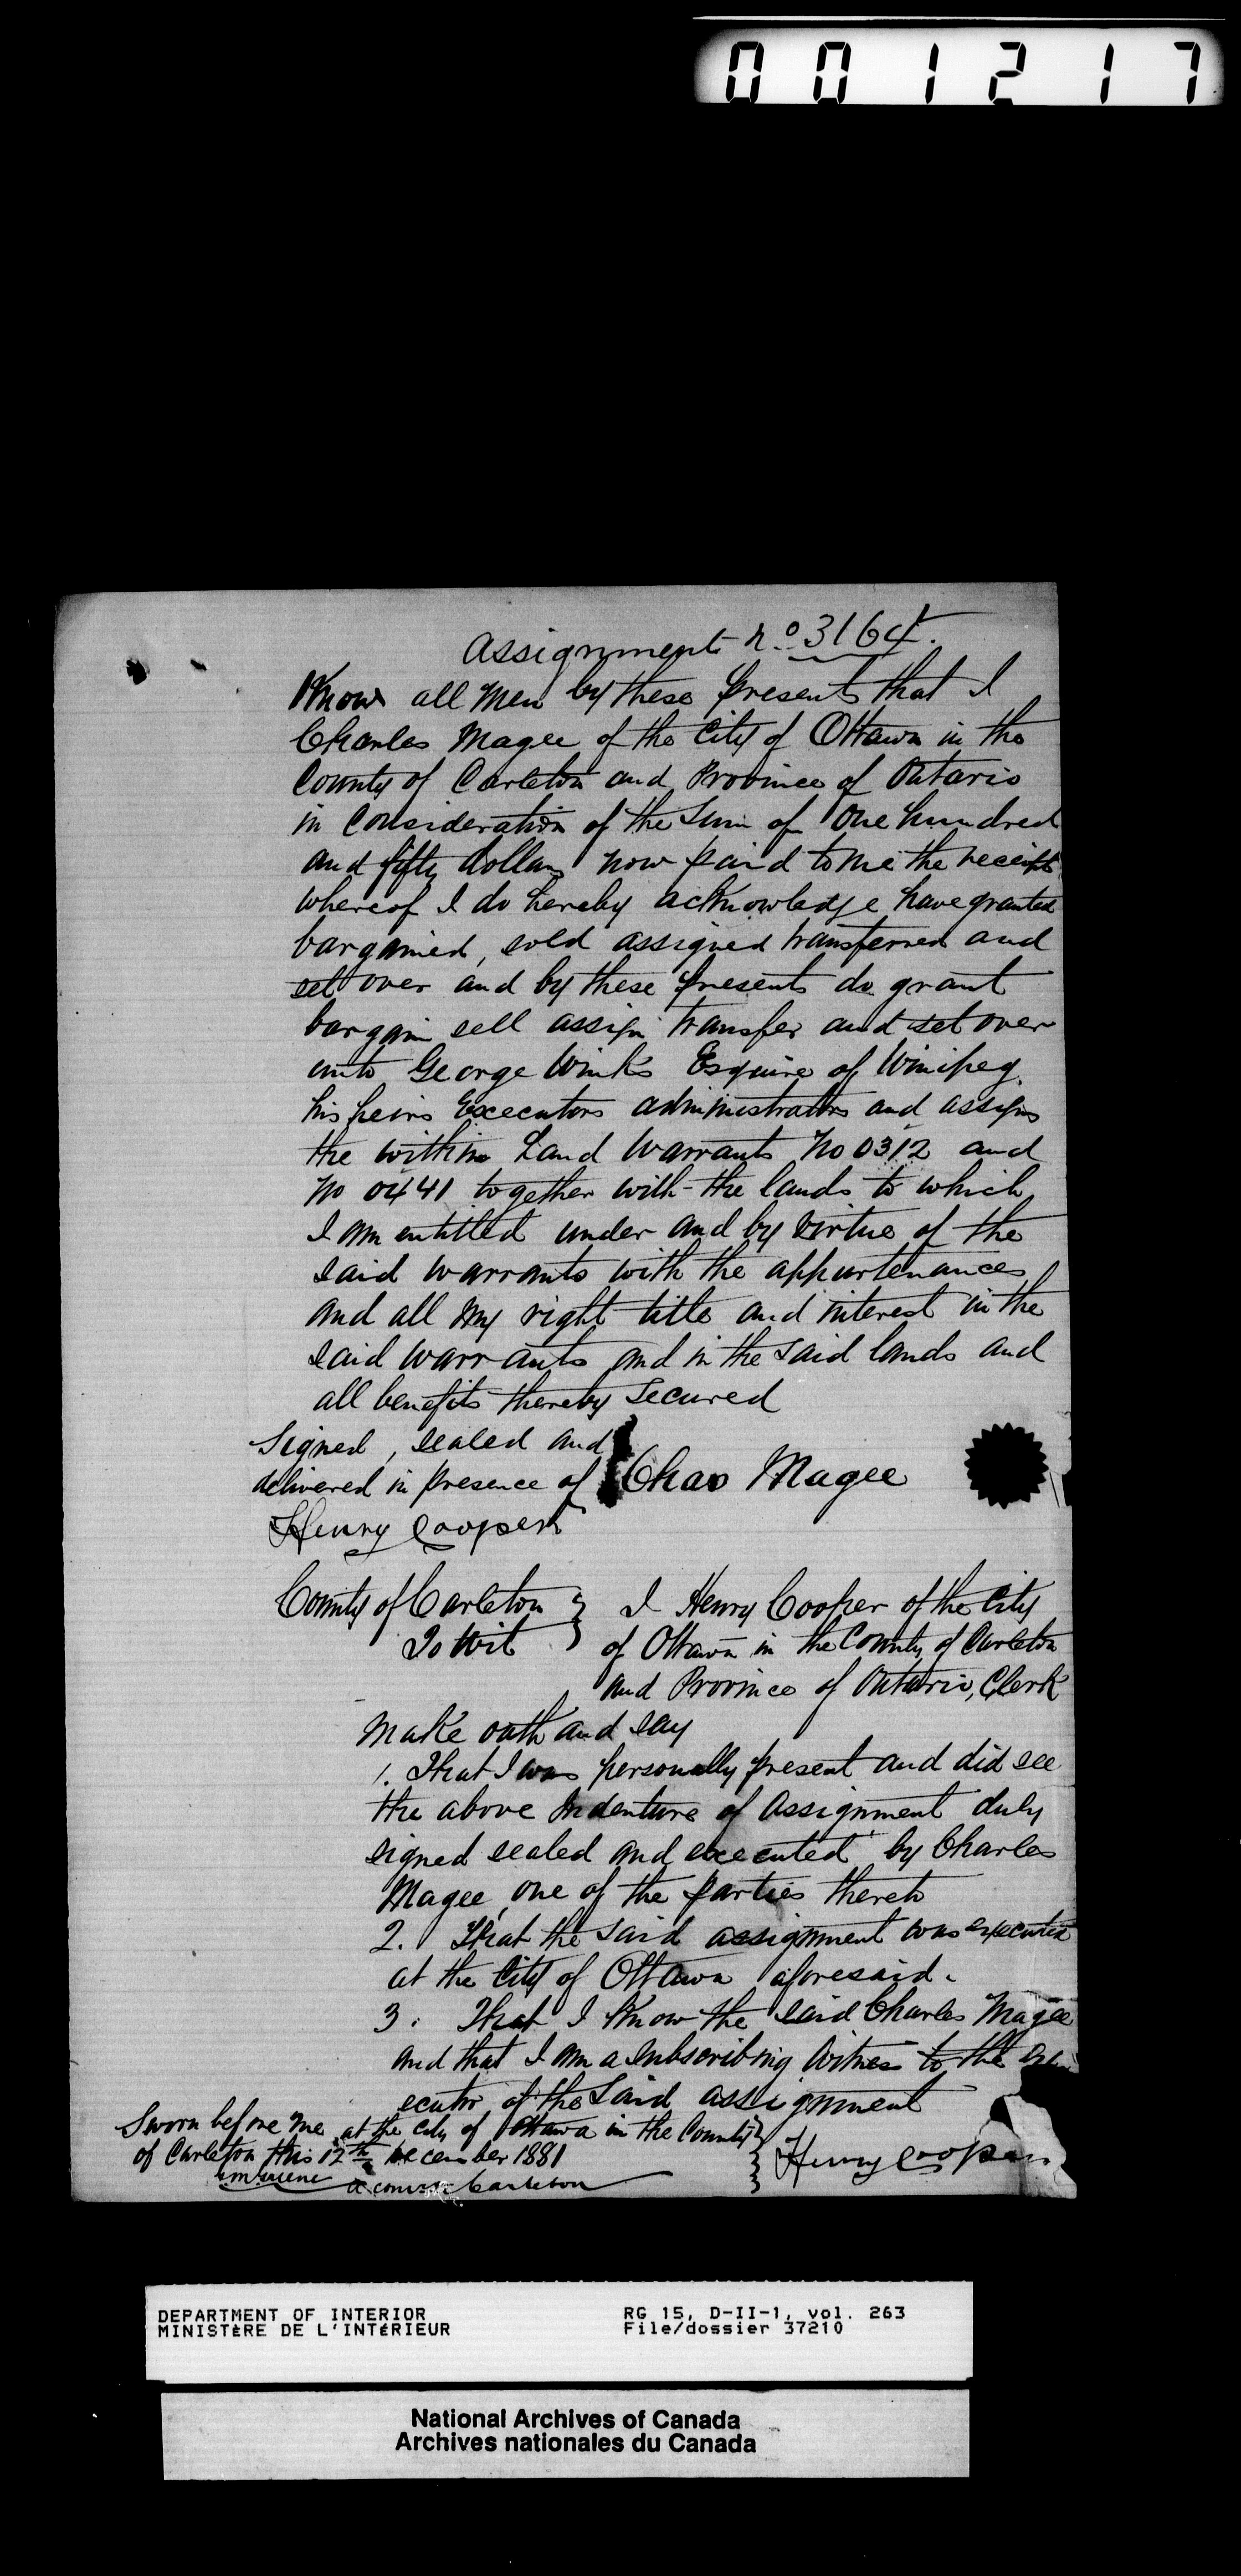 001217
Assignment No 3164.
Know all Men by these present that I
Charles Magee of the City of Ottawa in the
County of Carleton and Province of Ontario
in Consideration of the Sum of One hundred
and fifty dollars now paid to me the receipt
whereof I do hereby acknowledge have granted
bargained, sold assigned transferred and
set over and by these presents do grant
bargain sell assign transfer and set over
unto George Winks Esquire of Winipeg
his heirs Executors administrators and assigns
the within Land Warrants No 0312 and
No 0441 together with the lands to which
I am entitled under and by virtue of the
said Warrants with the appurtenances
and all my right title and interest in the
said Warrants and in the said lands and
all benefits thereby secured
Signed, sealed and
delivered in presence of Chas Magee
Henry Cooper
County of Carleton } I Henry Cooper of the City
To Wit } of Ottawa in the County of Carleton
and Province of Ontario, Clerk
Make oath and say
1. That I was personally present and did see
the above Indenture of Assignment duly
signed sealed and executed by Charles
Magee, one of the parties thereto
2. That the said assignment was executed
at the City of Ottawa aforesaid.
3. That I Know the said Charles Magee
and that I am a Subscribing Witness to the
of the Said assignment
Sworn before me at the city of Ottawa in the County
of Carleton this 12th December 1881 } Henry Cooper
Carleton
DEPARTMENT OF INTERIOR RG 15, D-II-1, vol. 263
MINISTÈRE DE L'INTÉRIEUR File/dossier 37210
National Archives of Canada
Archives nationales du Canada